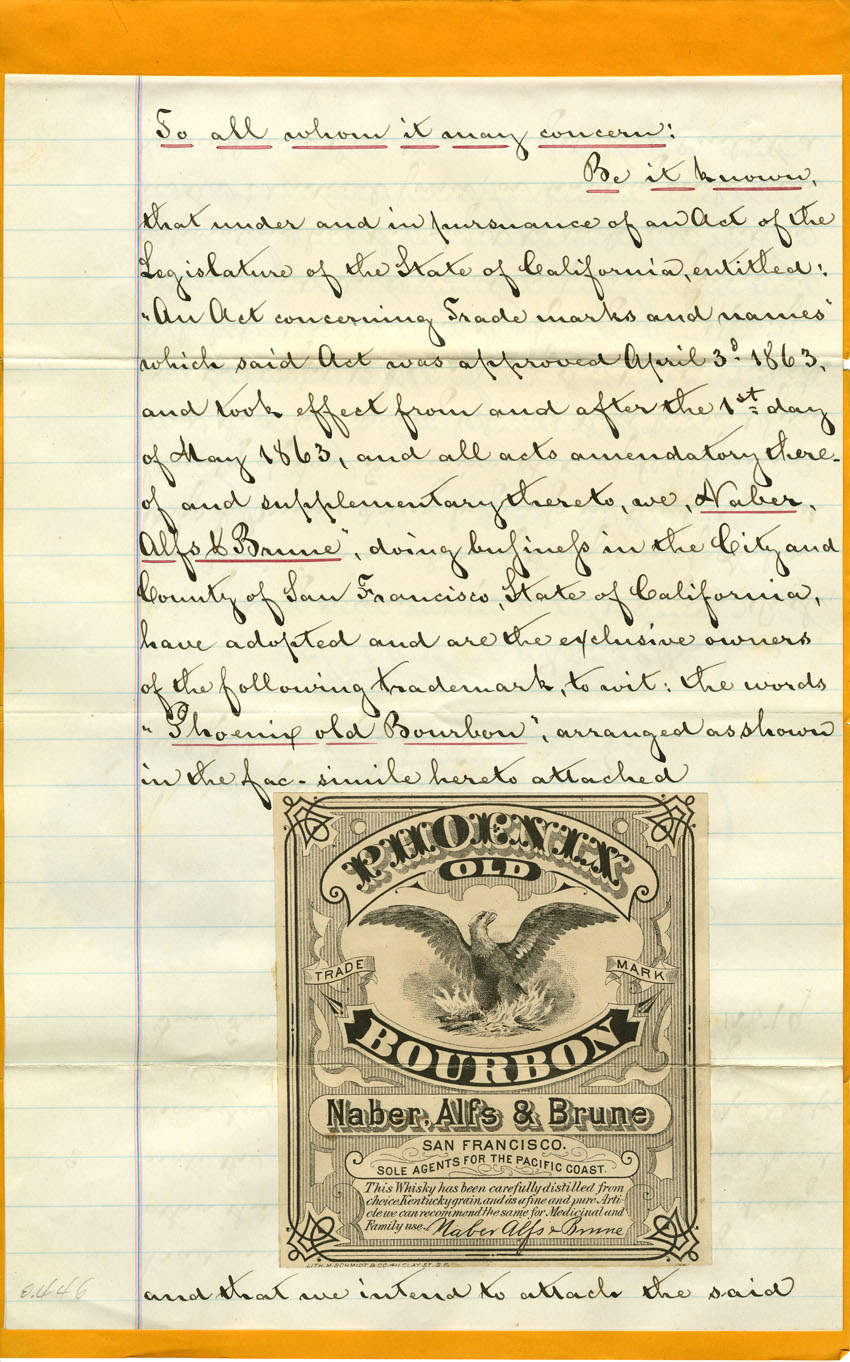 To all whom it may concern:
Be it known,
that under and in pursuance of an Act of the
Legislature of the State of California, entitled:
"An Act concerning Trade marks and names"
which said Act was approved April 3d. 1863,
and took effect from and after the 1st day
of May 1863, and all acts amendatory there-
of and supplementary thereto, we, Naber,
Alfs & Brune", doing business in the City and
County of San Francisco, State of California,
have adopted and are the exclusive owners
of the following trademark, to wit: the words
"Phoenix old Bourbon", arranged as shown
in the fac-simile hereto attached
PHOENIX
OLD
TRADE MARK
BOURBON
Naber, Alfs & Brune
SAN FRANCISCO.
SOLE AGENTS FOR THE PACIFIC COAST.
This Whisky has been carefully distilled from
choice Kentucky grain, and as a fine and pure Arti-
cle we can recommend the same for Medicinal and
Family use. Naber Alfs & Brune
LITH. M. SCHMIDT & CO. 411 CLAY ST. S.F.
and that we intend to attach the said
o.446